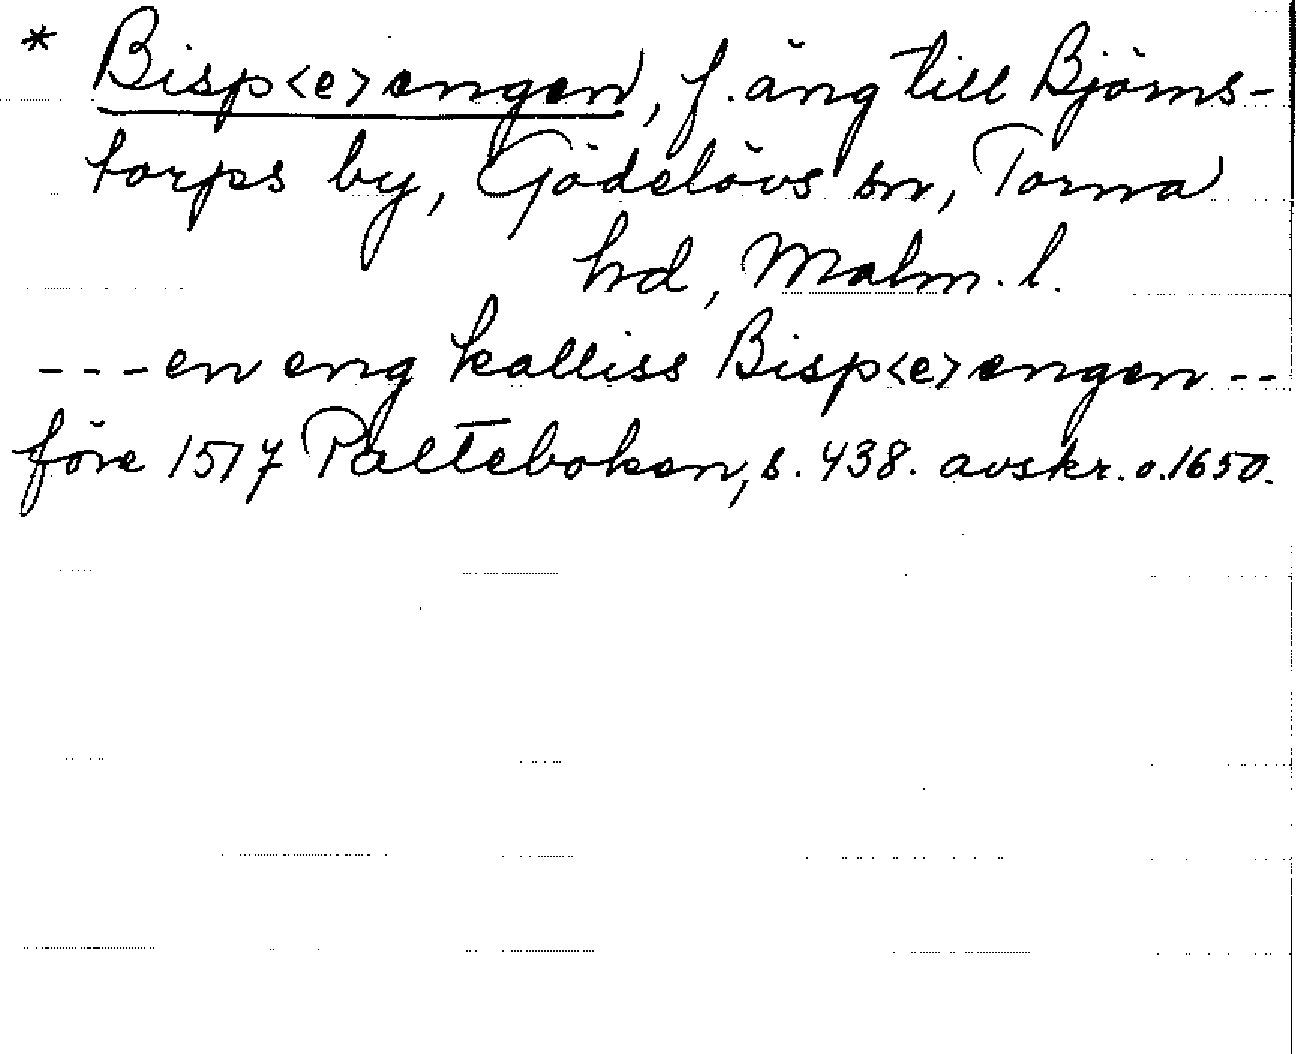 * Bisp<e>engen, f. äng till Björns-
torps by, Gödelövs sn, Torna
hd, Malm. l.
---en eng kalliss Bisp<e>engen --
före 1517 Palteboken, s. 438. avskr. o. 1650.